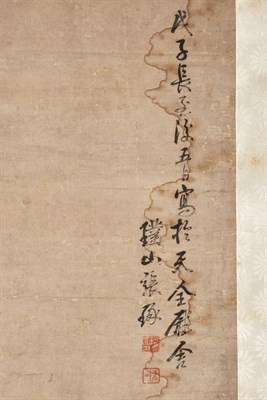 戊子長至後五日寫於天全殿舍
璞山張